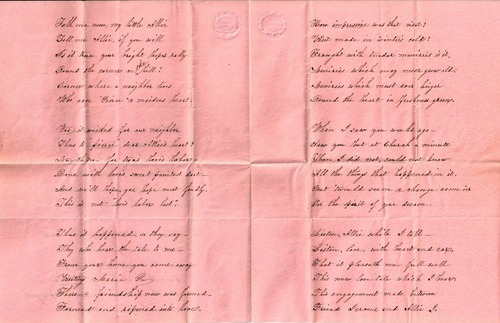 Tell me now, my little Allie
Tell me Allie, if you will
Is it true your bright hopes rally
Round the corner on the hill?
Corner where a neighbor lives
Who can a maidens heart.
Was it wicked for our neighbor
Thus to dear Allie's heart?
for love's labor
Done with love's sweet pointed dart
And we'll hope, yes hope most fondly,
This is not "love's labor lost".
Thus it happened, so they say
They who bear the tale to me
From your home you came away
Visiting
There a friendship new was formed
Formed and ripened into love.
How impressive was that visit!
Visit made in winter's cold!
Fraught with tender memories is it,
Memories which may never grow old.
Memories which must e'er linger
Round the heart in freshness green.
When I saw you weeks ago
Now you but at Church a minute
Then I did not, could not know
All the things that happened in it.
But would seem a change came in
On the spirit of your dream.
Listen, Allie while I tell
Listen, love, with heart and ear,
What it pleaseth me full well
This new love tale which I hear
This engagement made between
Friend and Allie